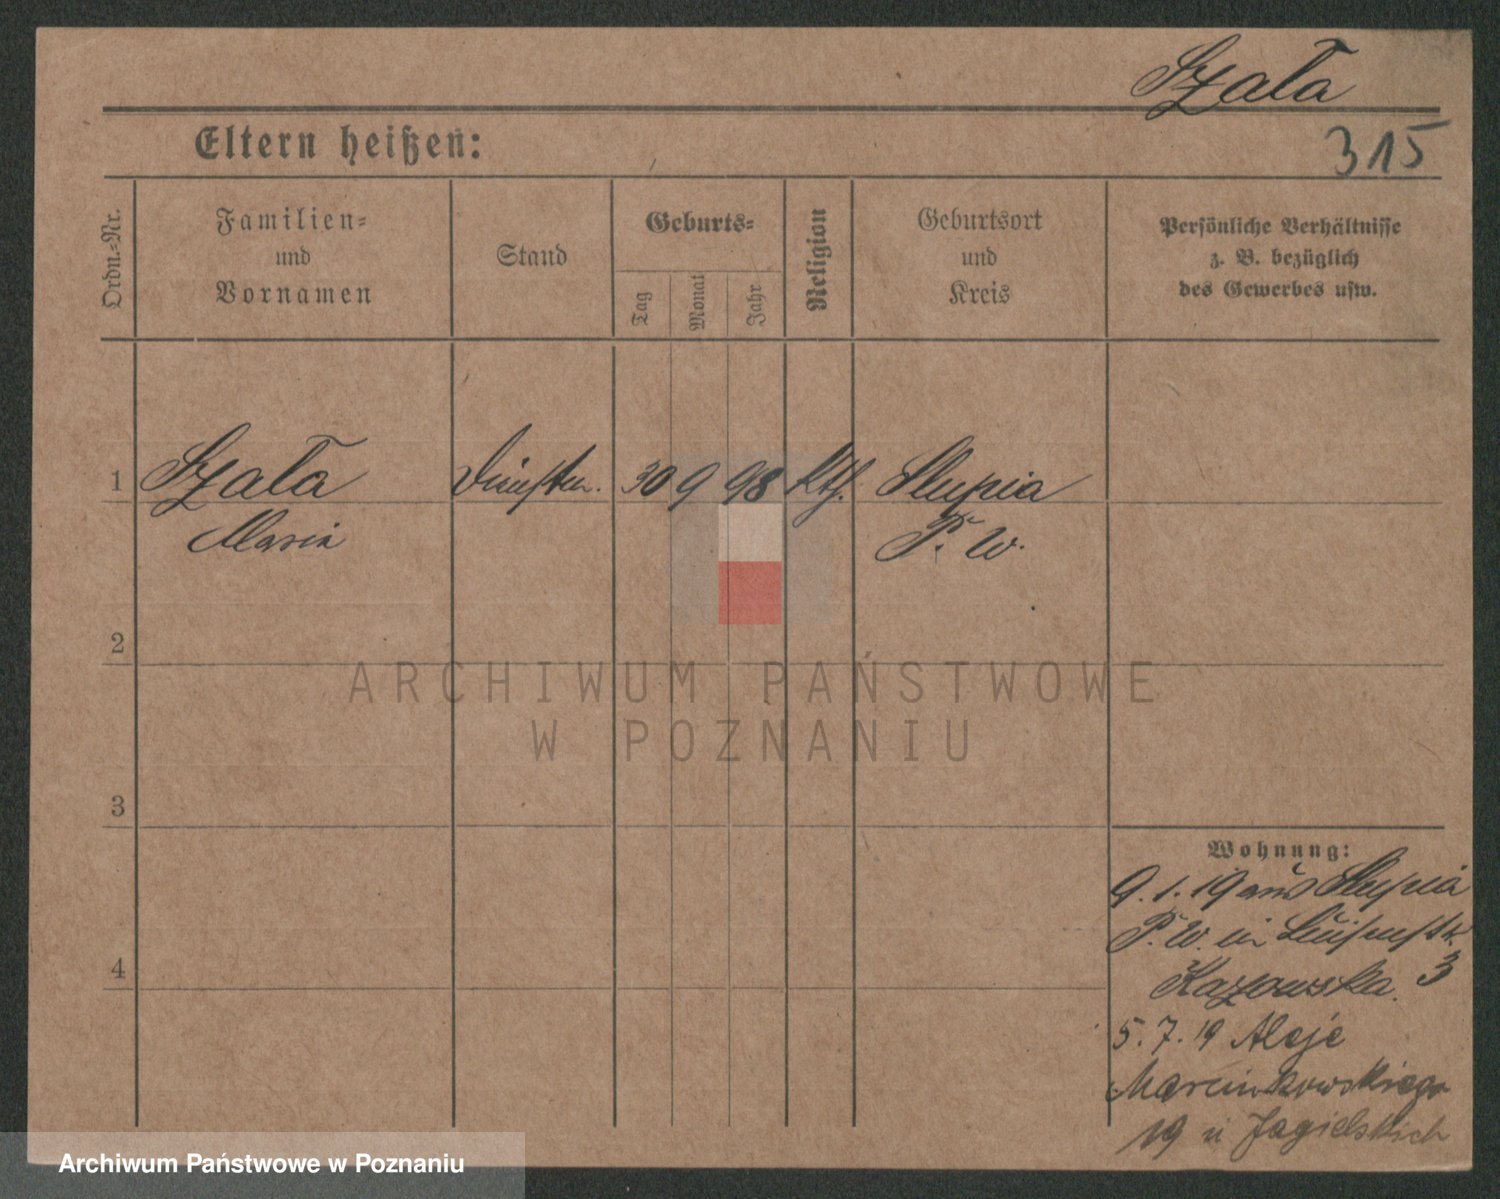 Szała
Eltern heißen:
315
Ordn.-Nr.
Familien-
und
Vornamen
Stand
Geburts-
Tag
Monat
Jahr
Religion
Geburtsort
und
Kreis
Persönliche Verhältnisse
z. B. bezüglich
des Gewerbes usw.
1 Szała Dienstm. 30 9 98 kth. Slupia
Maria P. W.
2
3
4
Wohnung:
9.1.19 aus Slupia
P. W. in Luisenstr.
3
Kazowska.
5.7.19 Aleje
Marcinkowskiego
19 u Jagielskich
ARCHIWUM PAŃSTWOWE
W POZNANIU
Archiwum Państwowe w Poznaniu